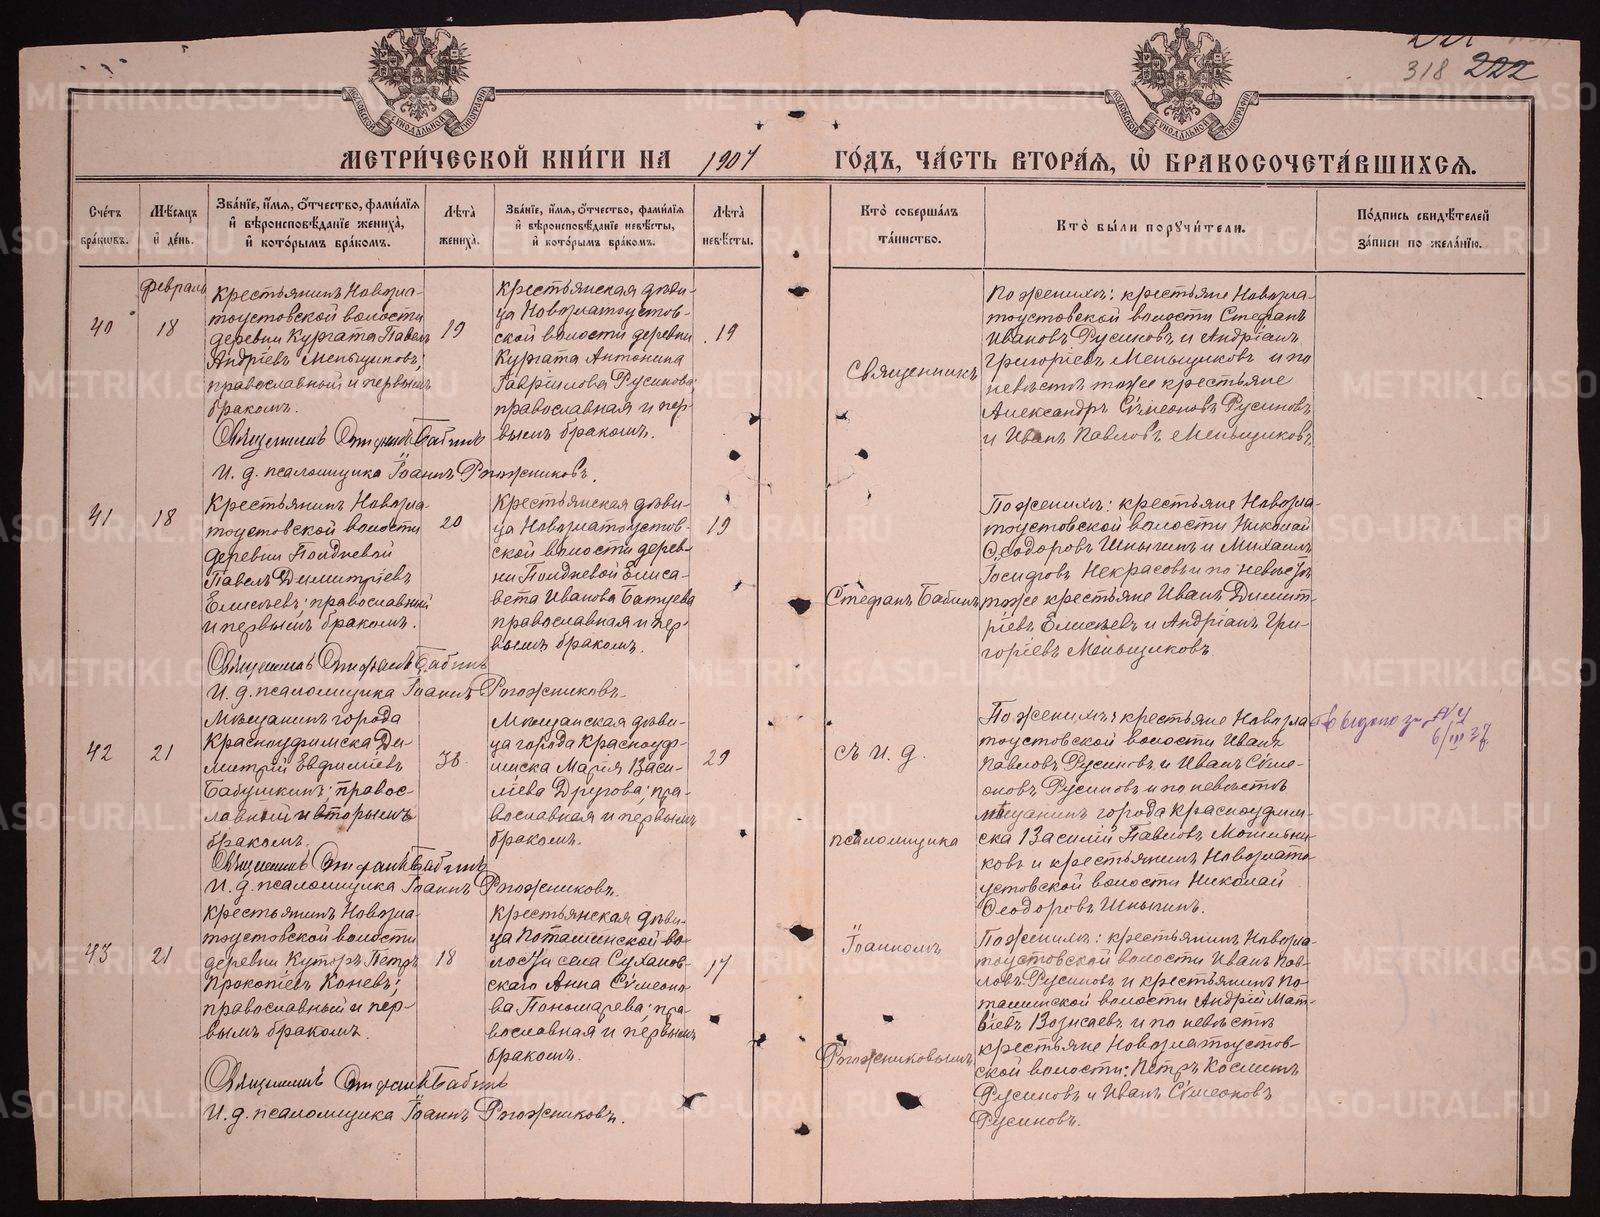 318 222
МЕТРИ́ЧЕСКОЙ КНИ́ГИ НА 1907 ГО́ДЪ, ЧА́СТЬ ВТОРА́Я, Ѡ БРАКОСОЧЕТА́ВШИХСЯ.
МОСКОВСКОЙ СИНОДАЛЬНОЙ ТИПОГРАФИИ
МОСКОВСКОЙ СИНОДАЛЬНОЙ ТИПОГРАФИИ
Счетъ браковъ.
Мѣсяцъ и день.
Званіе, имя, отчество, фамилія
и вѣроисповѣданіе жениха,
и которымъ бракомъ.
Лѣта жениха.
Званіе, имя, отчество, фамилія
и вѣроисповѣданіе невѣсты,
и которымъ бракомъ.
Лѣта невѣсты.
Кто совершалъ таинство.
Кто были поручители.
Подпись свидѣтелей
записи по желанію.
40
Февраль
18
Крестьянинъ Новозла-
тоустовской волости
деревни Кургата Павелъ
Андріевъ Меньщиковъ;
православный и первымъ
бракомъ.
19
Крестьянская дѣви-
ца Новозлатоустов-
ской волости деревни
Кургата Антонина
Гавріилова Русинова;
православная и пер-
вымъ бракомъ.
19
По женихѣ: крестьяне Новозла-
тоустовской волости Стефанъ
Ивановъ Русиновъ и Андріанъ
Григоріевъ Меньщиковъ и по
невѣстѣ тоже крестьяне
Александръ Сѵмеоновъ Русиновъ
и Иванъ Павловъ Меньщиковъ.
Священникъ Стефанъ Бабинъ
И. д. псаломщика Іоаннъ Рогожниковъ.
41
18
Крестьянинъ Новозла-
тоустовской волости
деревни Полдневой
Павелъ Димитріевъ
Елисѣевъ; православный
и первымъ бракомъ.
20
Крестьянская дѣви-
ца Новозлатоустов-
ской волости дерев-
ни Полдневой Елиса-
вета Иванова Батуева
православная и пер-
вымъ бракомъ.
19
По женихѣ: крестьяне Новозла-
тоустовской волости Николай
Ѳеодоровъ Шныгинъ и Михаилъ
Іосифовъ Некрасовъ и по невѣстѣ
тоже крестьяне Иванъ Димит-
ріевъ Елисѣевъ и Андріанъ Гри-
горіевъ Меньщиковъ.
Священникъ Стефанъ Бабинъ
И. д. псаломщика Іоаннъ Рогожниковъ.
42
21
Мѣщанинъ города
Красноуфимска Ди-
митрій Евфиміевъ
Бабушкинъ; правос-
лавный и вторымъ
бракомъ.
Мѣщанская дѣви-
ца города Красноуф-
имска Марія Васи-
ліева Другова; пра-
вославная и первымъ
бракомъ.
29
По женихѣ: крестьяне Новозла-
тоустовской волости Иванъ
Павловъ Русиновъ и Иванъ Сѵме-
оновъ Русиновъ и по невѣстѣ
мѣщанинъ города Красноуфим-
ска Василій Павловъ
ковъ и крестьянинъ Новозлато-
устовской волости Николай
Ѳеодоровъ Шныгинъ.
Священникъ Стефанъ Бабинъ
И. д. псаломщика Іоаннъ Рогожниковъ.
43
21
Крестьянинъ Новозла-
тоустовской волости
деревни Куторъ Петръ
Прокопіевъ Коневъ;
православный и пер-
вымъ бракомъ.
18
Крестьянская дѣви-
ца Поташинской во-
лости села Суханов-
скаго Анна Сѵмеоно-
ва Пономарева; пра-
вославная и первымъ
бракомъ.
17
По женихѣ: крестьянинъ Новозла-
тоустовской волости Иванъ Пав-
ловъ Русиновъ и крестьянинъ По-
ташинской волости Андрій Мат-
віевъ и по невѣстѣ
крестьяне Новозлатоустов-
ской волости: Петръ Косминъ
Русиновъ и Иванъ Сѵмеоновъ
Русиновъ.
Священникъ Стефанъ Бабинъ
И. д. псаломщика Іоаннъ Рогожниковъ.
Священникъ
Стефанъ Бабинъ
съ И. д.
псаломщика
Іоанномъ
Рогожниковымъ
METRIKI.GASO-URAL.RU